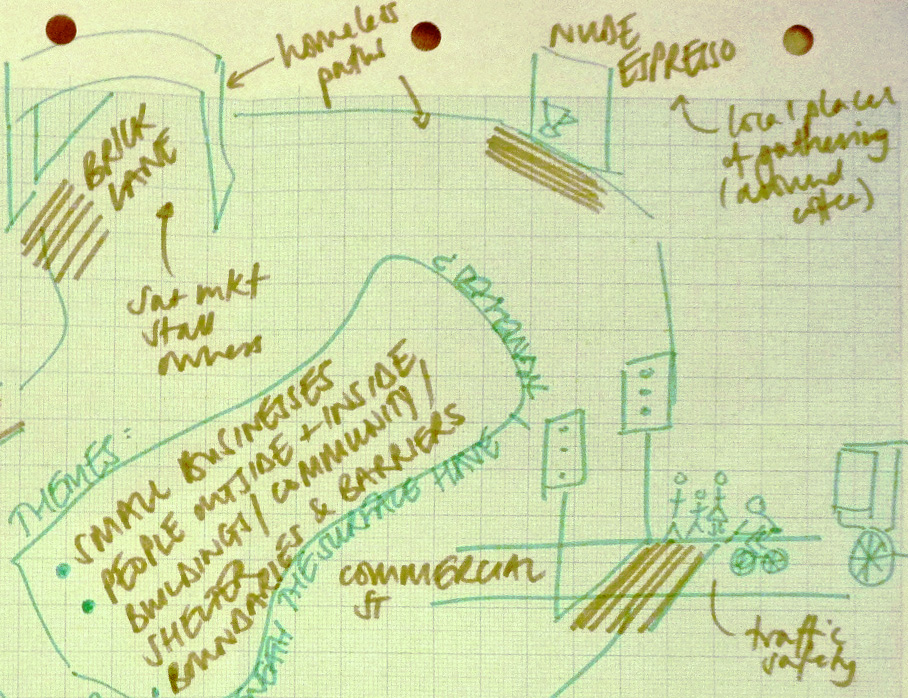 homeless
paths
NUDE
ESPRESSO
local places
of gathering
(around
coffee)
BRICK
LANE
Sat mkt
stall
owners
THEMES:
SMALL BUSINESSES
PEOPLE OUTSIDE + INSIDE
BUILDINGS / COMMUNITY /
SHELTER
BOUNDARIES & BARRIERS
THE SURFACE HAVE
COMMERCIAL
ST
traffic
safety